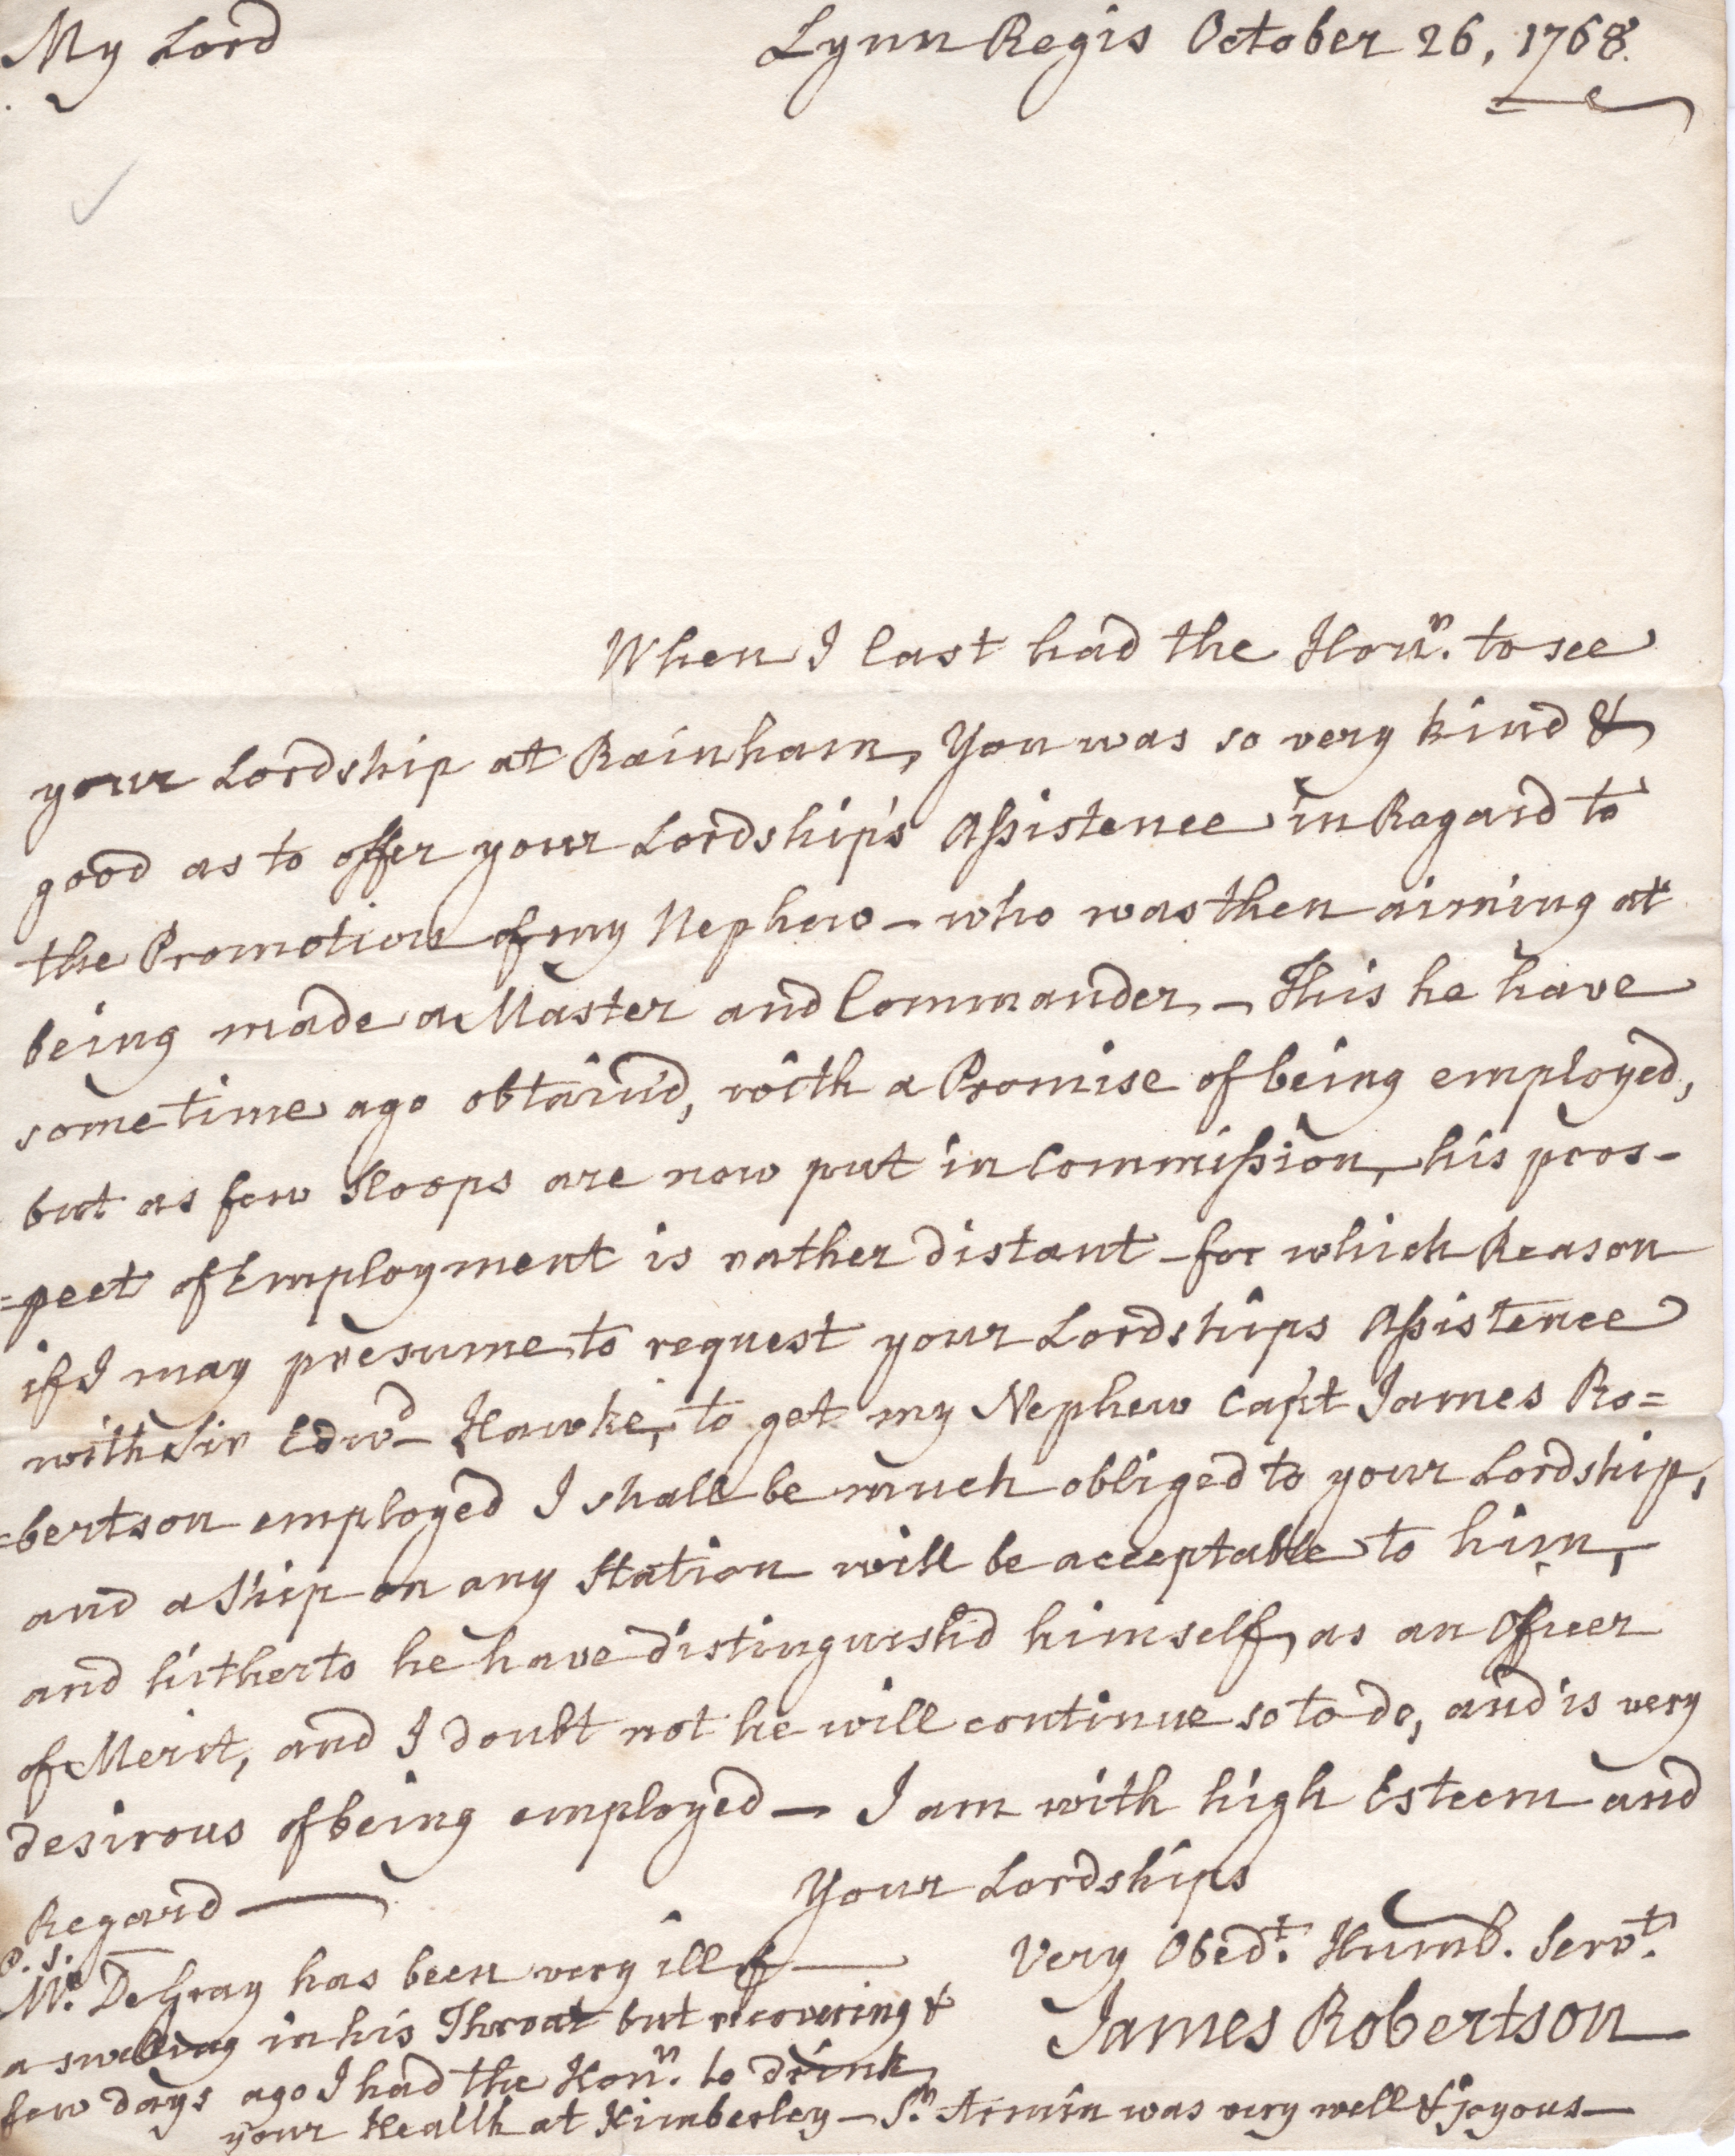 My Lord Lynn Regis October 26, 1768.
When I last had the Honr. to see
your Lordship at Rainham, You was so very kind &
good as to offer your Lordship's Assistence in Regard to
the Promotion of my Nephew - who was then aiming at
being made a Master and Commander - This he have
sometime ago obtain'd, with a Promise of being employed,
but as few Sloops are now put in Commission, his pros-
=pect of Employment is rather distant - for which Reason
if I may presume to request your Lordships Assistence
with Sir Edwd Hawke, to get my Nephew Capt James Ro=
=bertson employed I shall be much obliged to your Lordship,
and a Ship on any Station will be acceptable to him,
and hitherto he have distinguish'd himself, as an Officer
of Merit, and I doubt not he will continue so to do, and is very
desirous of being employed - I am with high Esteem and
Regard —
Your Lordships
Very Obedt. Humb. Servt.
James Robertson
P.S.
Mr. DeGray has been very ill of —
a swelling in his Throat but recovering &
few days ago I had the Honr. to drink
your Health at Kimberley - Sr. Armin was very well & joyous —